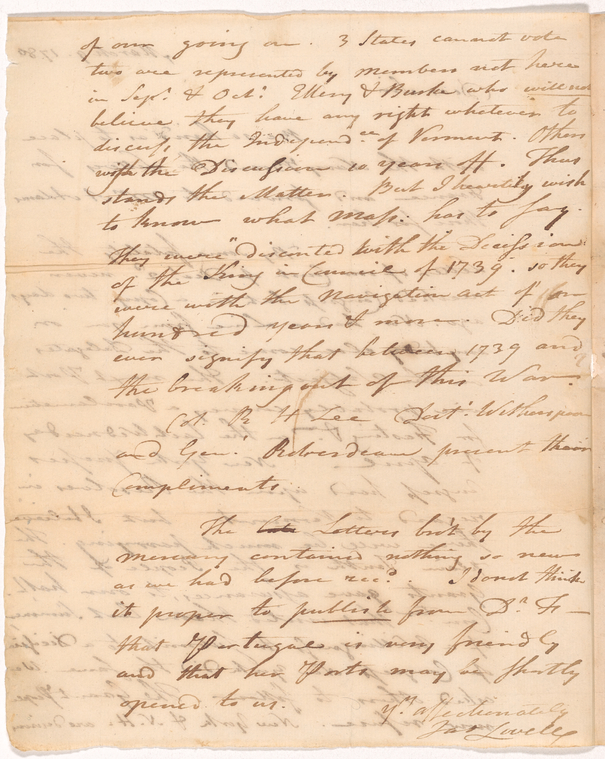 of our going on. 3 States cannot vote
two are represented by members not here
in Sepr. & Octr. Ellery & Burke who will not
believe they have any right whatever to
discuss the Independce of Vermont. Others
wish the Discussion 10 years off. Thus
stands the Matter. But I heartily wish
to know what Mass: has to say.
They were "discontd with the decission"
of the King in Council of 1739. so they
were with the Navigation act of for
hundred years & more. Did they
ever signify that between 1739 and
the breaking out of this War?
Col. R H Lee Doctr. Witherspoon
and Genl. Roberdeau present their
Compliments.
The Letters brot by the
mercury contained nothing so new
as we had before recd. I do not think
it proper to publish from Dr. F—
that Portugal is very friendly
and that her Ports may be shortly
opened to us.
yr. affectionately
Jas Lovell